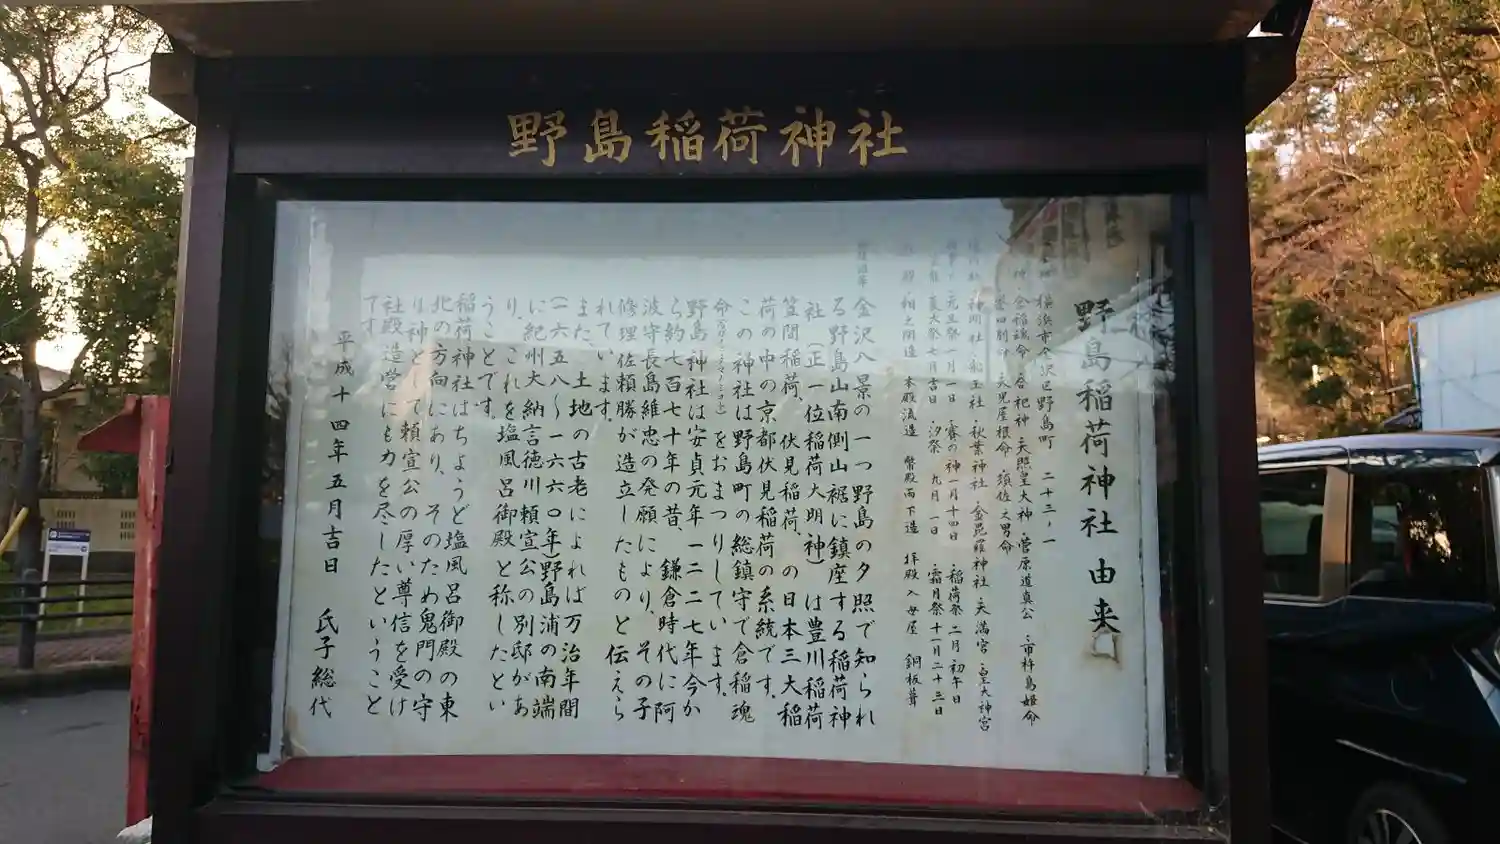 野島稲荷神社
野島稲荷神社由来
横浜市金沢区野島町 二十三ノ一
倉稲魂命 合祀神 天照皇大神・菅原道真公・市杵島姫命
誉田別命・天児屋根命・須佐之男命
神明社・船玉社・秋葉神社・金毘羅神社・天満宮・皇大神宮
元旦祭一月一日・賽の神一月十四日・稲荷祭二月初午日
夏大祭七月吉日・汐祭 九月一日・霜月祭十一月二十三日
本殿流造 幣殿両下造 拝殿入母屋 銅板葺
金沢八景の一つ野島の夕照で知られ
る野島山南側山裾に鎮座する稲荷神
社(正一位稲荷大明神)は豊川稲荷
笠間稲荷、伏見稲荷、の日本三大稲
荷の中の京都伏見稲荷の系統です。
この神社は野島町の総鎮守で倉稲魂
命をおまつりしています。
野島神社は安貞元年一二二七年今か
ら約七百七十年の昔、鎌倉時代に阿
波守長島維忠の発願により、その子
修理佐頼勝が造立したものと伝えら
れています。
また、土地の古老によれば万治年間
(一六五八〜一六六〇年)野島浦の南端
に紀州大納言徳川頼宣公の別邸があ
り、これを塩風呂御殿と称したとい
うことです。
稲荷神社はちょうど塩風呂御殿の東
北の方向にあり、そのため鬼門の守
り神として頼宣公の厚い尊信を受け
社殿造営にも力を尽したということ
です。
平成十四年五月吉日 氏子総代